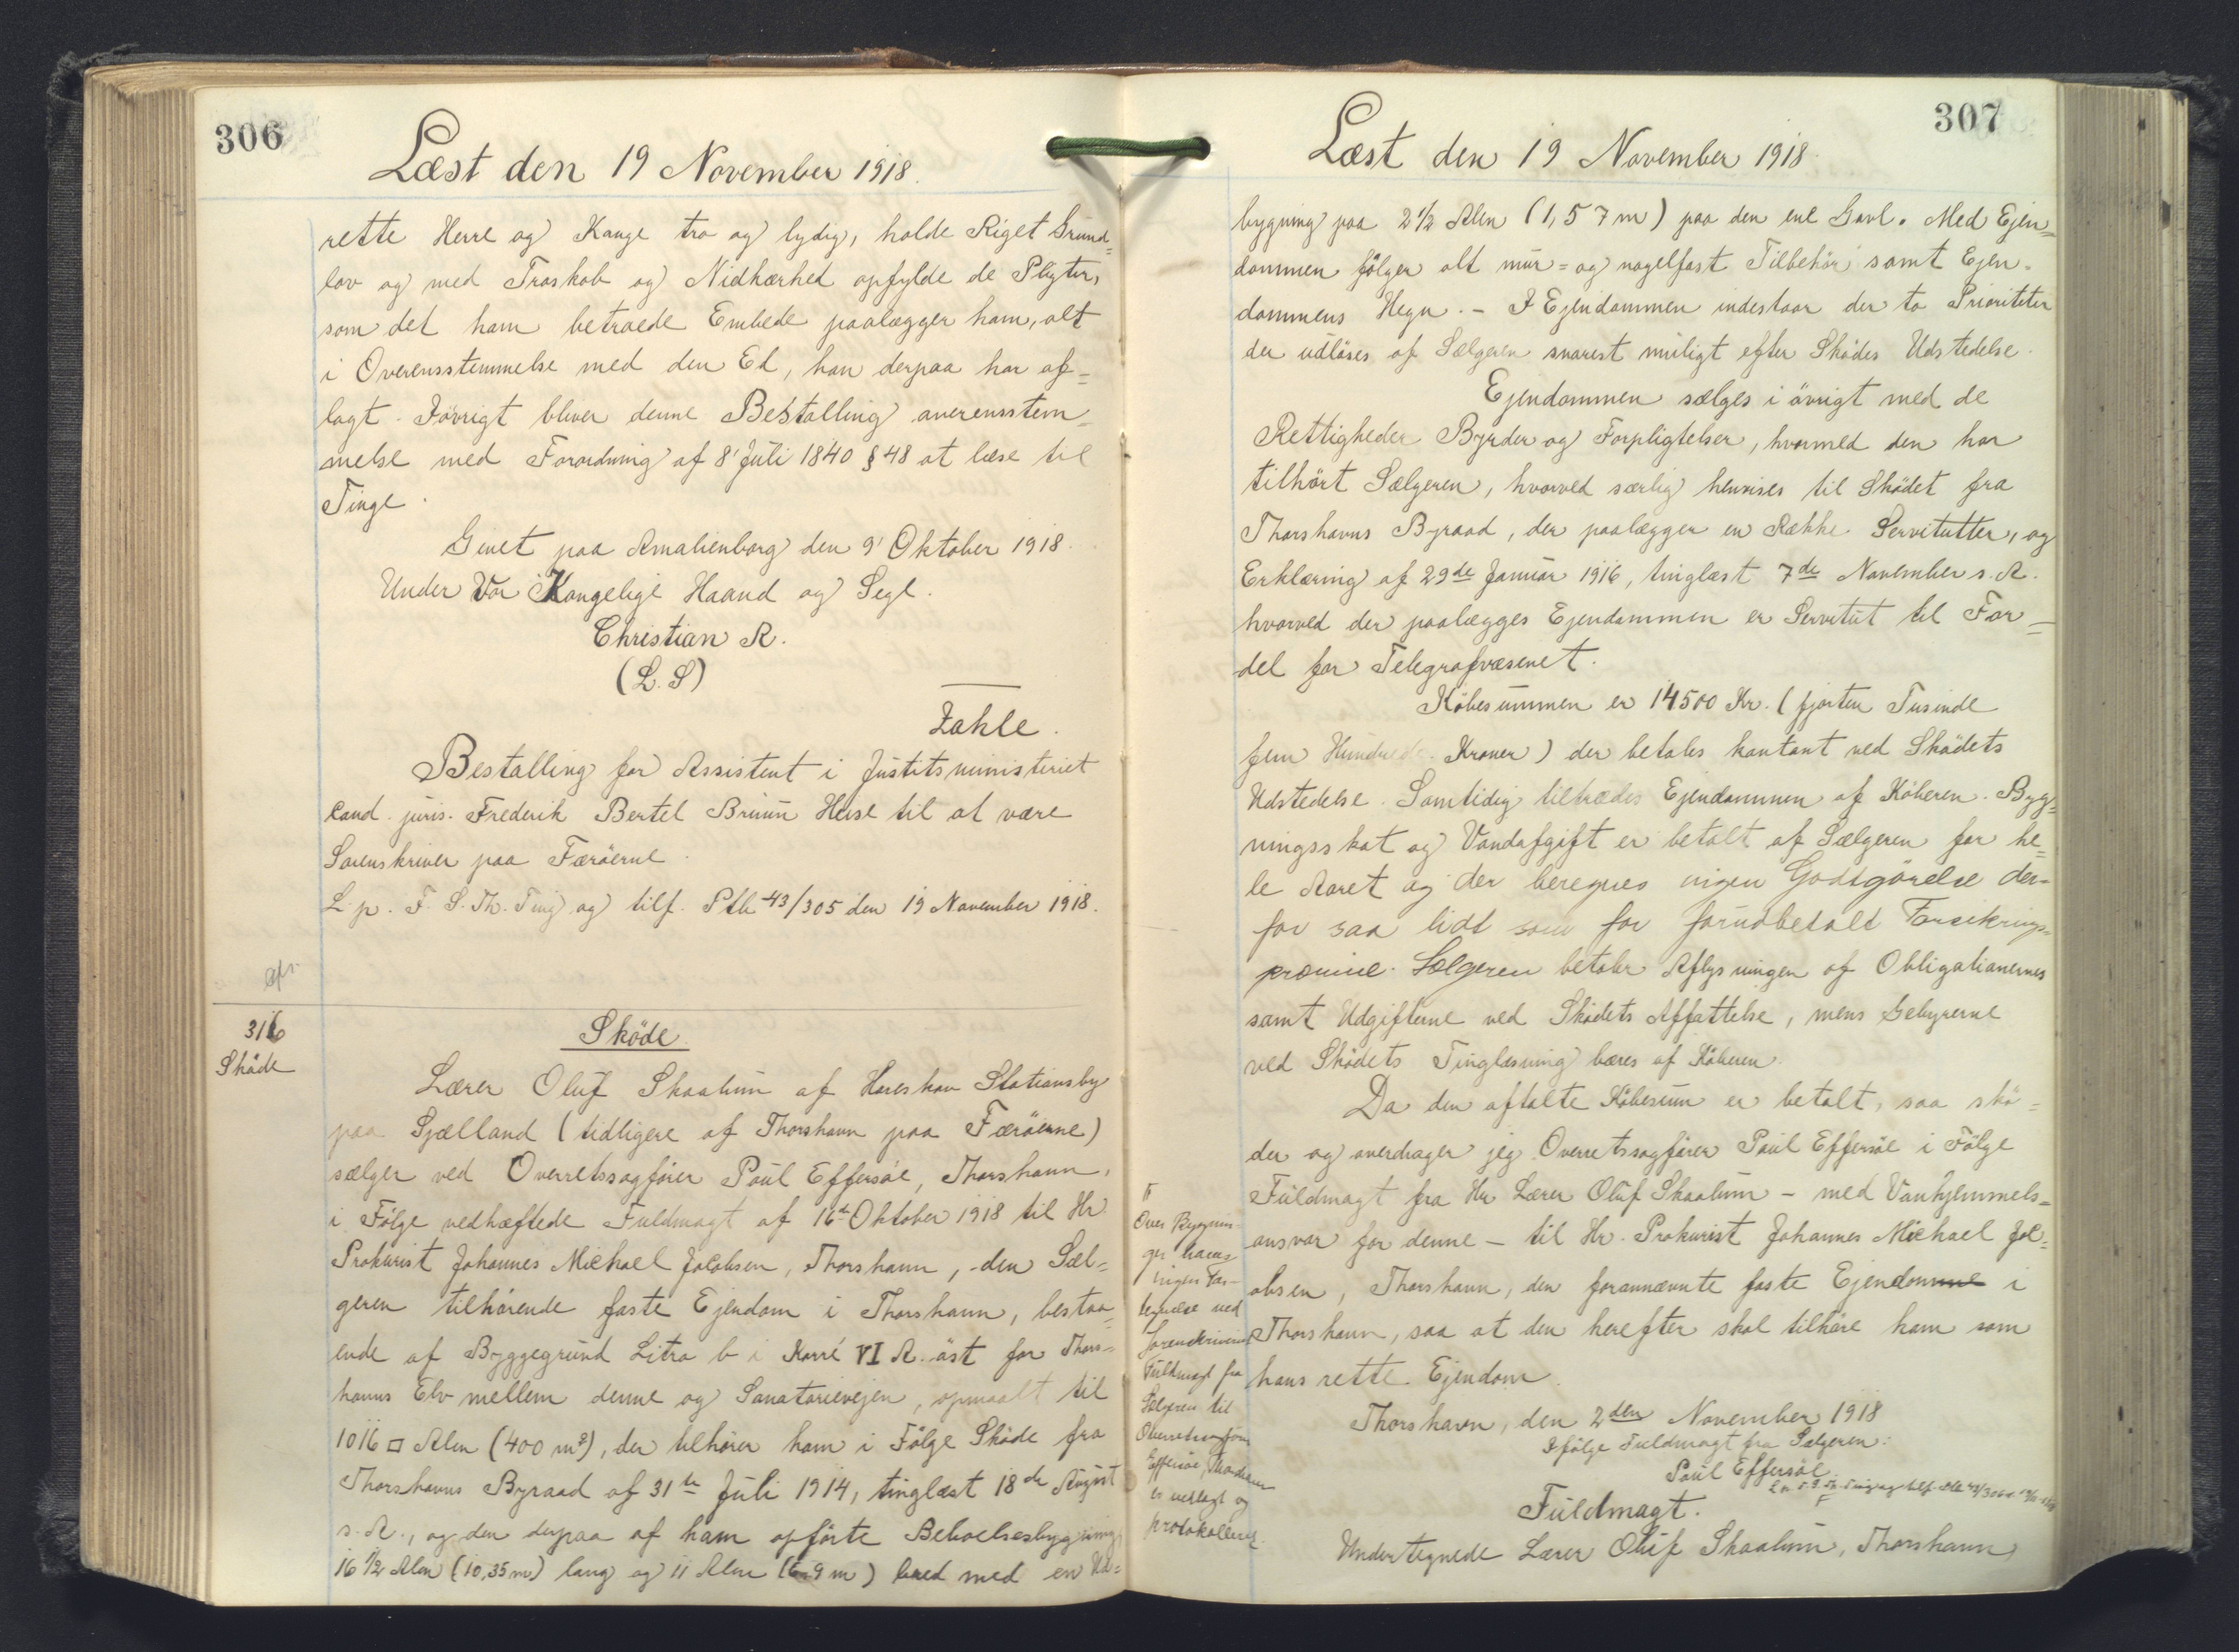 306
Læst den 19 November 1918.
rette Herre og Konge tro og lydig, holde Riget Grund=
lov og med Troskab og Nidkærhed opfylde de Pligter,
som det ham betroede Embede paalægger ham, alt
i Overensstemmelse med den Ed, han derpaa har af=
lagt. Iøvrigt bliver denne Bestalling overensstem=
melse med Forordning af 8' Juli 1840 § 48 at læse til
Tinge.
Givet paa Amalienborg den 9' Oktober 1918.
Under Vor Kongelige Haand og Segl.
Christian R.
(L. S)
Zahle.
Bestalling for Assistent i Justitsministeriet
cand. juris. Frederik Bertel Bruun Heise til at være
Sorenskriver paa Færöerne.
L. p. F. S. Th. Ting og tilf. Ptk 43/305 den 19 November 1918.
316
Sköde
Sköde.
Lærer Oluf Skaalum af Hareskov Stationsby
paa Sjælland (tidligere af Thorshavn paa Færöerne)
sælger ved Overretssagförer Poul Effersöe, Thorshavn,
i Fölge vedhæftede Fuldmagt af 16de Oktober 1918 til Hr
Prokurist Johannes Michael Jacobsen, Thorshavn, den Sæl=
geren tilhörende faste Ejendom i Thorshavn, bestaa=
ende af Byggegrund Litra b i Karré VI A. öst for Thors=
havns Elv mellem denne og Sanatorievejen, opmaalt til
1016 □ Alen (400 m²), der tilhører ham i Fölge Sköde fra
Thorshavns Byraad af 31te Juli 1914, tinglæst 18de August
s. A., og den derpaa af ham opförte Beboelsesbygning
16 1/2 Alen (10,35 m) lang og 11 Alen (6,9 m) bred med en Ud=
307
Læst den 19 November 1918.
bygning paa 2 1/2 Alen (1,57 m) paa den ene Gavl. Med Ejen=
dommen fölger alt mur= og nagelfast Tilbehör samt Ejen=
dommens Hegn. - I Ejendommen indestaar der to Prioriteter
der udlöses af Sælgeren snarest muligt efter Skødes Udstedelse.
Ejendommen sælges i övrigt med de
Rettigheder Byrder og Forpligtelser, hvormed den har
tilhört Sælgeren, hvorved særlig henvises til Sködet fra
Thorshavns Byraad, der paalægger en Række Servitutter, og
Erklæring af 29de Januar 1916, tinglæst 7de November s. A.
hvorved der paalægges Ejendommen er Servitut til For=
del for Telegrafvæsenet.
Köbesummen er 14500 Kr. (fjorten Tusinde
fem Hundrede Kroner) der betales kontant ved Skødets
Udstedelse. Samtidig tiltrædes Ejendommen af Köberen. Byg=
ningsskat og Vandafgift er betalt af Sælgeren for he=
le Aaret og der beregnes ingen Godtgörelse der=
for saa lidt som for forudbetalt Forsikrings=
præmie. Sælgeren betaler Aflysningen af Obligationernes
samt Udgifterne ved Skødets Affattelse, mens Gebyrerne
ved Skødets Tinglæsning bæres af Köberen.
Da den aftalte Köbesum er betalt, saa skö=
der og overdrager jeg Overretssagförer Poul Effersöe i Fölge
Fuldmagt fra Hr Lærer Oluf Skaalum - med Vanhjemmels=
ansvar for denne - til Hr. Prokurist Johannes Michael Jac=
obsen, Thorshavn, den forannævnte faste Ejendomme i
Thorshavn, saa at den herefter skal tilhöre ham som
hans rette Ejendom.
Over Bygnin=
ger haves
ingen For=
tegnelse ved
Sorenskriveriet
Fuldmagt fra
Sælgeren til
Overretssagfører
Effersöe, Thorshavn
er vedlagt og
protokolleret.
Thorshavn, den 2den November 1918
I følge Fuldmagt fra Sælgeren:
Poul Effersöe.
Fuldmagt.
Undertegnede Lærer Oluf Skaalum, Thorshavn